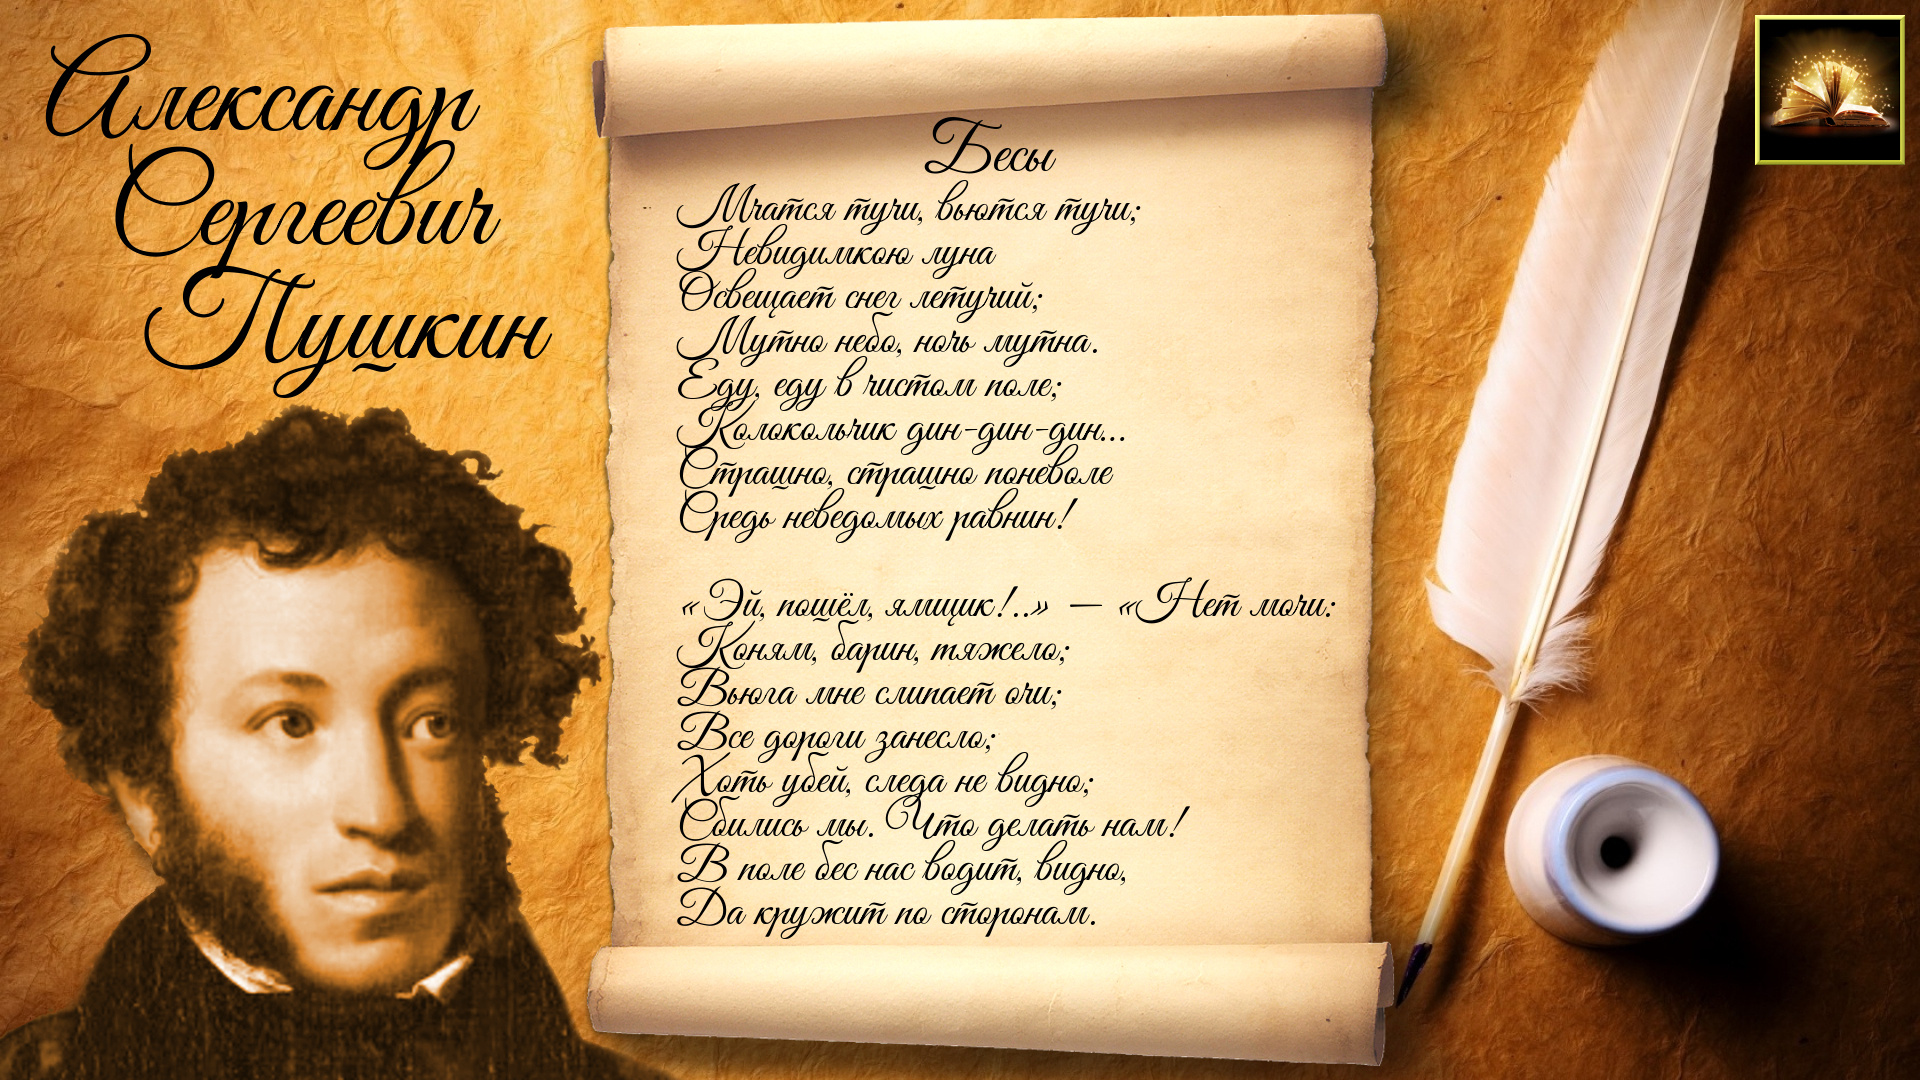 Александр
Сергеевич
Пушкин
Бесы
Мчатся тучи, вьются тучи;
Невидимкою луна
Освещает снег летучий;
Мутно небо, ночь мутна.
Еду, еду в чистом поле;
Колокольчик дин-дин-дин...
Страшно, страшно поневоле
Средь неведомых равнин!
«Эй, пошёл, ямщик!..» — «Нет мочи:
Коням, барин, тяжело;
Вьюга мне слипает очи;
Все дороги занесло;
Хоть убей, следа не видно;
Сбились мы. Что делать нам!
В поле бес нас водит, видно,
Да кружит по сторонам.